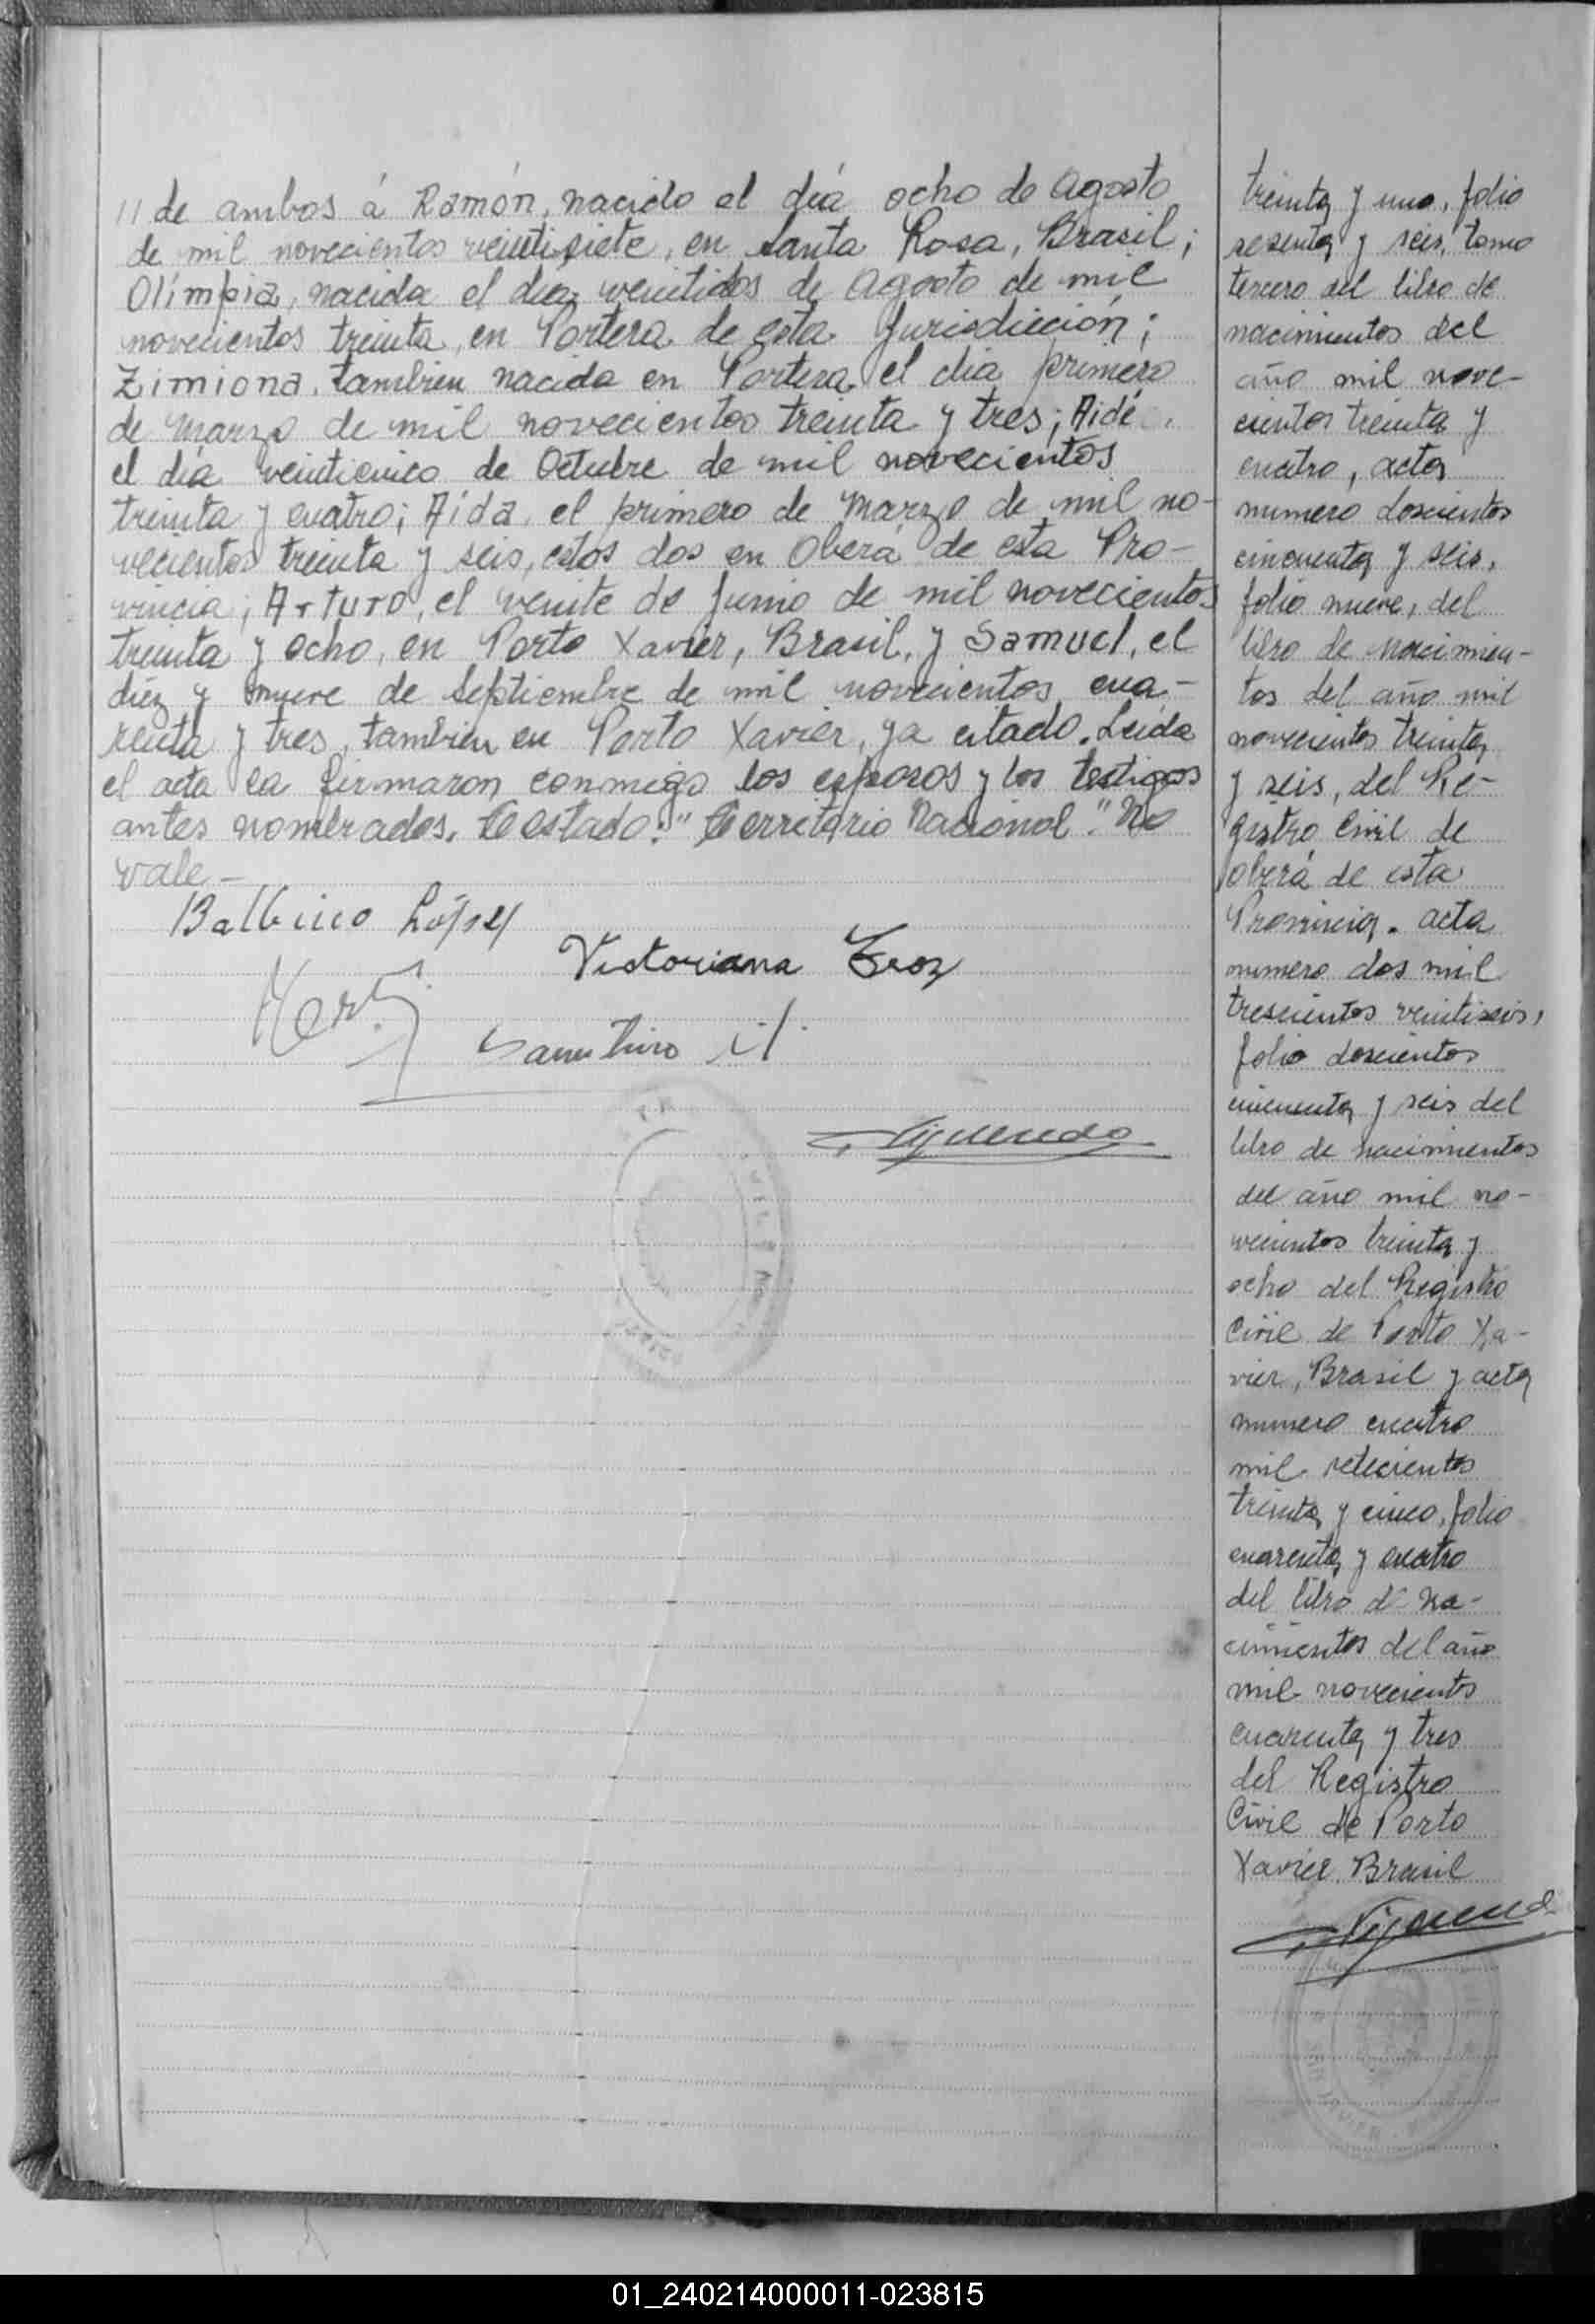 11 de ambos á Ramón, nacido el día ocho de Agosto
de mil novecientos veintisiete, en Santa Rosa, Brasil;
Olímpia, nacida el día veintidos de Agosto de mil
novecientos treinta, en Portera de esta Jurisdicción;
Zimiona, tambien nacida en Portera el día primero
de Marzo de mil novecientos treinta y tres; Aidé,
el día veinticinco de Octubre de mil novecientos
treinta y cuatro; Aída, el primero de Marzo de mil no-
vecientos treinta y seis, estos dos en Oberá de esta Pro-
vincia; Arturo, el veinte de Junio de mil novecientos
treinta y ocho, en Porto Xavier, Brasil, y Samuel, el
diez y nueve de Septiembre de mil novecientos cua-
renta y tres, tambien en Porto Xavier, ya citado. Leida
el acta la firmaron conmigo los esposos y los testigos
antes nombrados. Testado: "Territorio Nacional". No
vale-
Balbino López
Victoriana
Figueredo
treinta y uno, folio
sesenta y seis, tomo
tercero del libro de
nacimientos del
año mil nove-
cientos treinta y
cuatro, acta
numero doscientos
cincuenta y seis,
folio nueve, del
libro de nacimien-
tos del año mil
novecientos treinta
y seis, del Re-
gistro Civil de
Oberá de esta
Provincia. acta
numero dos mil
trescientos veintiseis,
folio doscientos
cincuenta y seis del
libro de nacimientos
del año mil no-
vecientos treinta y
ocho del Registro
Civil de Porto Xa-
vier, Brasil y acta
numero cuatro
mil setecientos
treinta y cinco, folio
cuarenta y cuatro
del libro de na-
cimientos del año
mil novecientos
cuarenta y tres
del Registro
Civil de Porto
Xavier Brasil
Figueredo
01_240214000011-023815